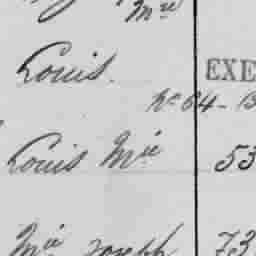 Mie
Louis. EXE
No 64 - B
Louis Mie 53
Mie Joseph 73